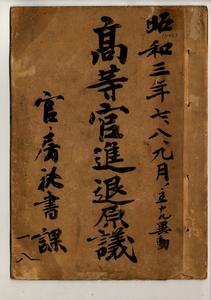 昭和三年七、八、九月ノ主ナル異動
高等官進退原議
官房秘書課
一八